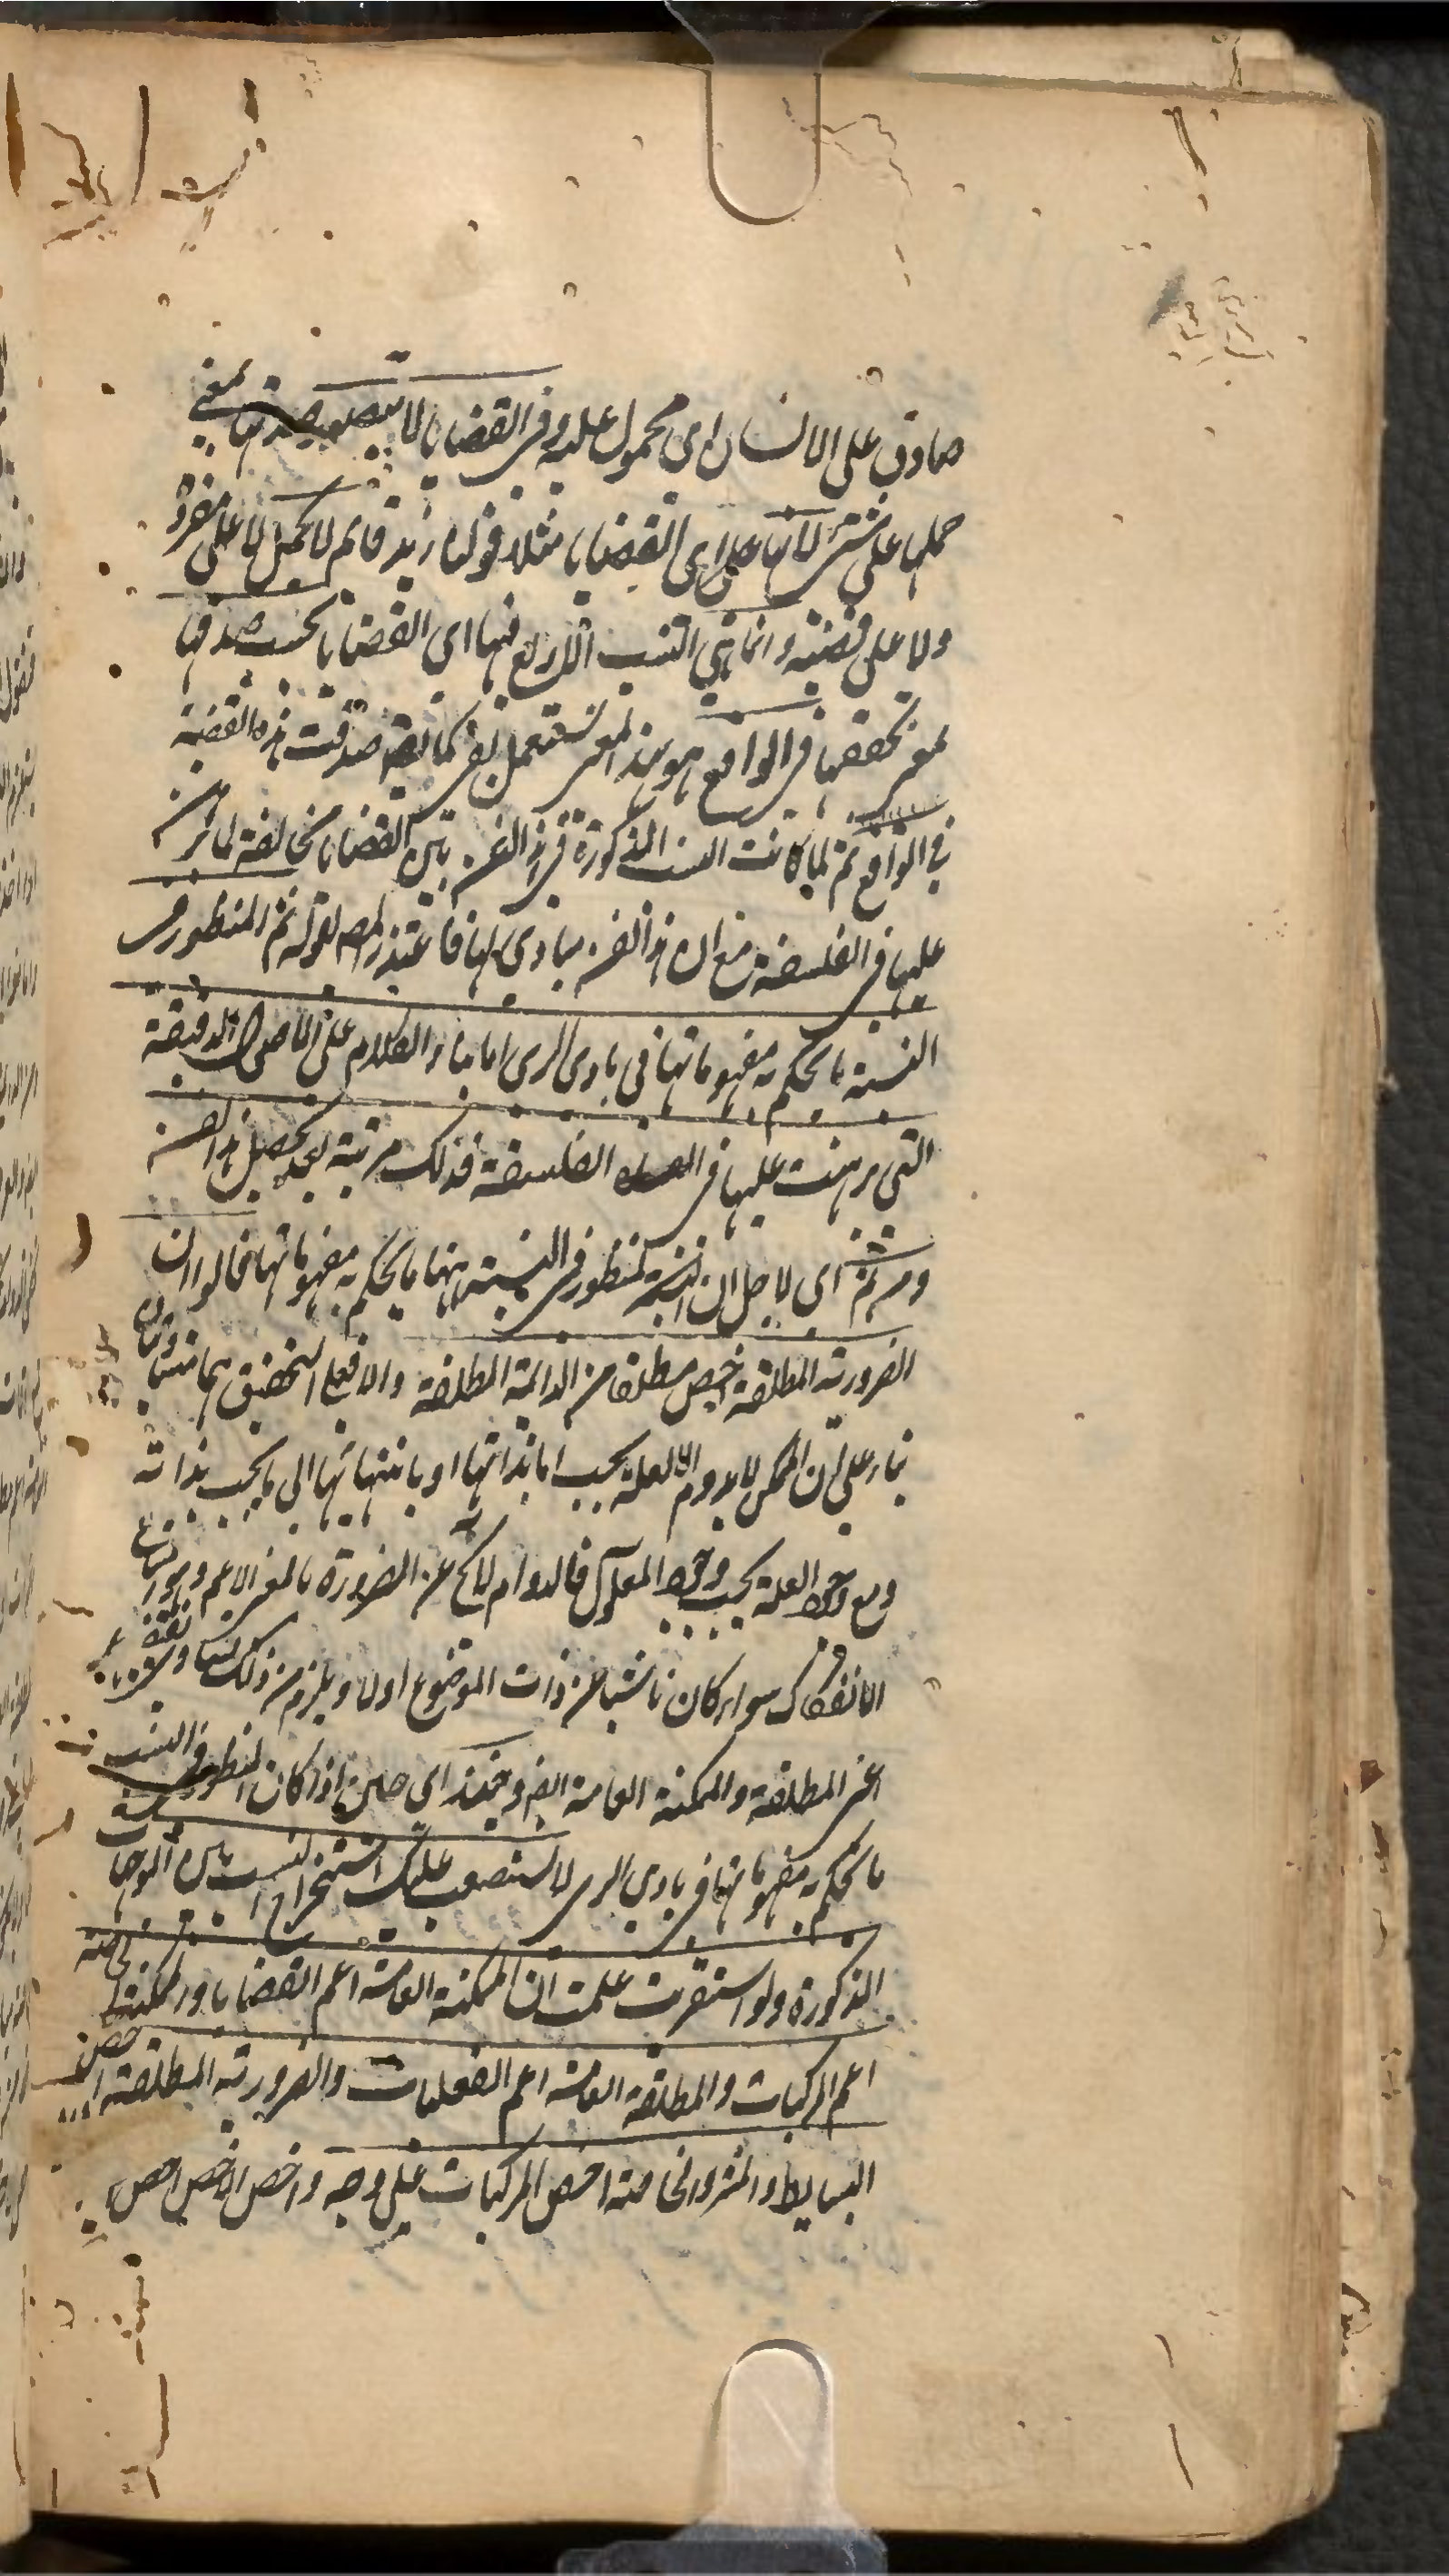 صادق على الانسان اى محمول عليه وفى القضايا لا يتصور صدقها بمعنى
حملها على شئ لانها اى القضايا مثلا قولنا زيد قائم لا يحمل لا على مفرد
ولا على قضية وانما هي النسب الاربع فيها اى القضايا بحسب صدقها
بمعنى تحققها فى الواقع هو بهذا المعنى يستعمل بفى كما يقم صدقت هذه القضية
فى الواقع ثم لما كانت النسب المذكورة فى هذا الفن بين القضايا مخالفة لما برهن
عليها فى الفلسفة مع ان هذا الفن مبادى لها فاعتذر المصه بقوله ثم المنظور فى
النسبة ما يحكم به مفهوماتها فى بادى الرى اما بناء الكلام على الاصول الدقيقة
التى برهنت عليها فى الفلسفة فذلك مرتبة بعد تحصيل هذا الفن
ومن ثم اى لاجل ان المنظور فى النسبة بينها ما يحكم به مفهوماتها قالوا ان
الضرورية المطلقة اخص مطلقا من الدائمة المطلقة والا فعلى التحقيق هما متساويان
بناء على ان الممكن لا يدوم الا لعلة يجب اما بذاتها او بانتهائها الى ما يجب بذاته
ومع وجود العلة يجب وجود المعلول فالدوام لا يخ عن الضرورة بالمعنى الاعم وهو امتناع
الانفكاك سواء كان ناشيا عن ذات الموضوع اولا ويلزم من ذلك تساوى نقيضيهما
اعنى المطلقة والممكنة العامة ايض وحينئذ اى حين اذا كان المنظور فى النسب
ما يحكم به مفهوماتها فى بادى الرى لا يستصعب عليك استخراج النسب بين الموجهات
المذكورة ولو استقريت علمت ان الممكنة العامة اعم القضايا والممكنة الخاصة
اعم المركبات والمطلقة العامة اعم الفعليات والضرورية المطلقة اخص
البسايط والمشروطة الخاصة اخص المركبات على وجه واخص الاخص اخص